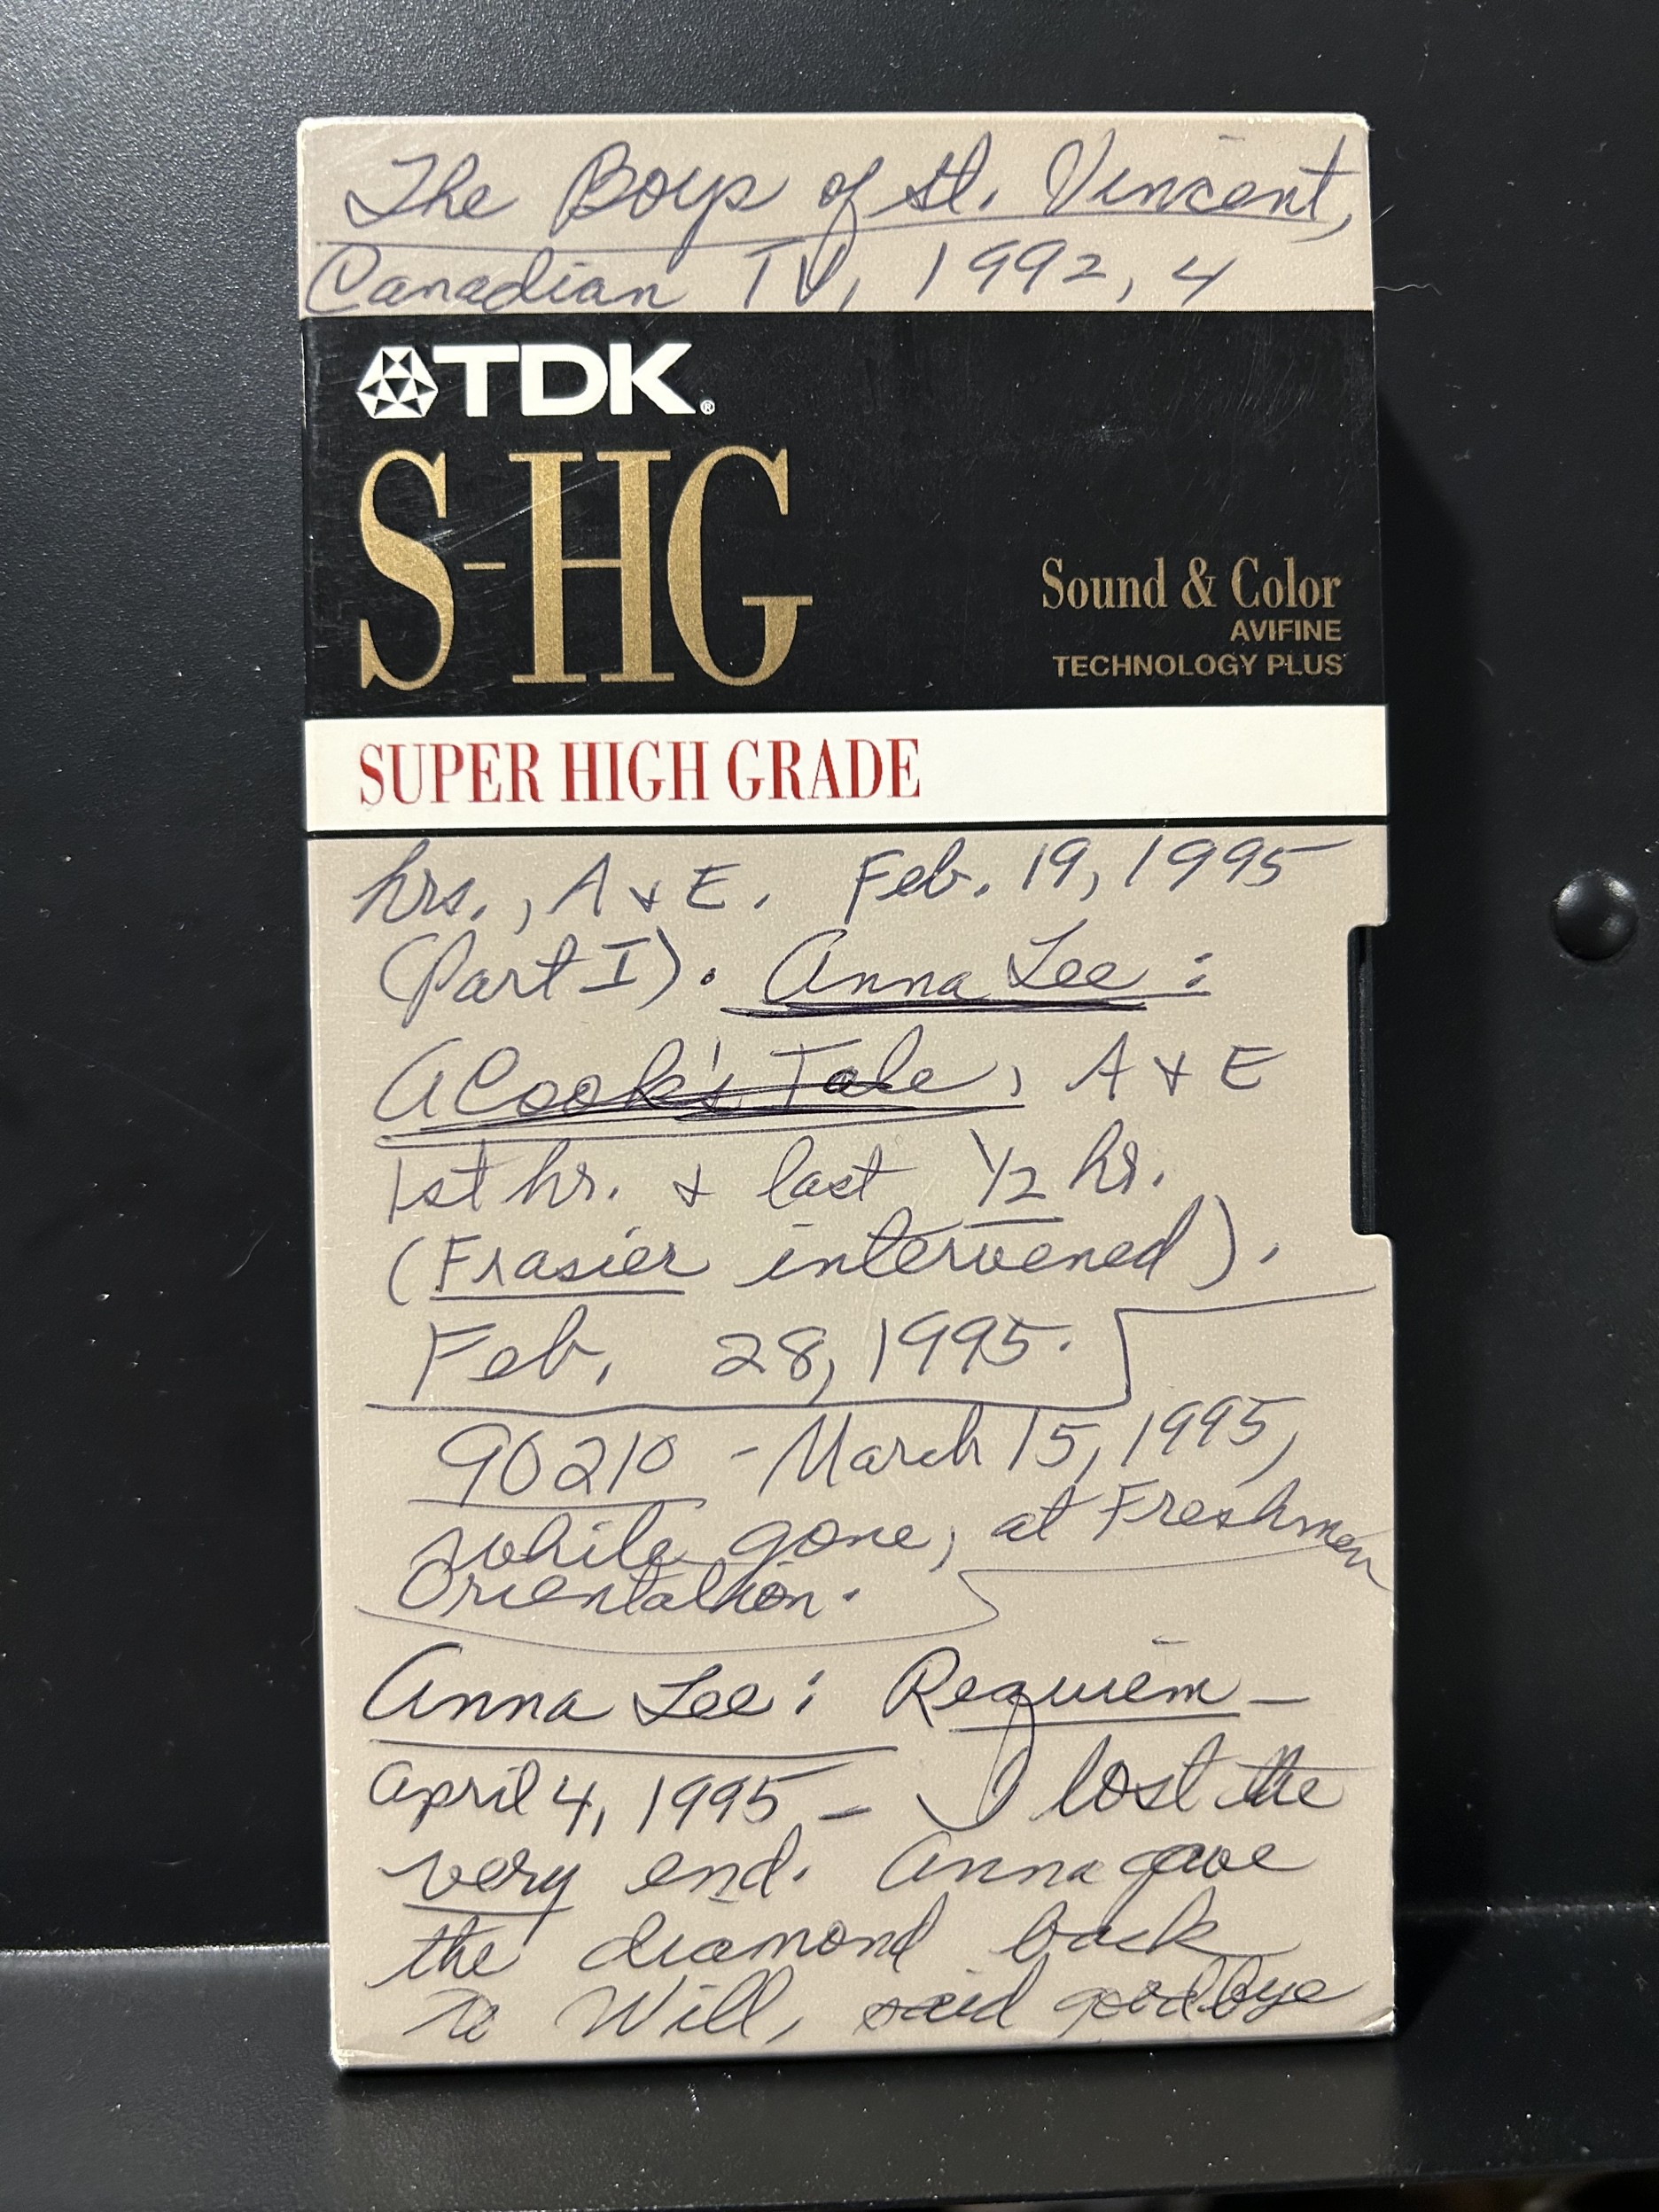 The Boys of St. Vincent,
Canadian TV, 1992, 4
TDK®
S-HG
Sound & Color
AVIFINE
TECHNOLOGY PLUS
SUPER HIGH GRADE
hrs., A & E. Feb. 19, 1995
(Part I). Anna Lee:
A Cook's Tale, A & E
1st hr. & last 1/2 hr.
(Frasier intervened).
Feb. 28, 1995.
90210 - March 15, 1995,
while gone, at Freshmen
Orientation.
Anna Lee: Requiem -
April 4, 1995 - I lost the
very end. Anna gave
the diamond back
to Will, said goodbye